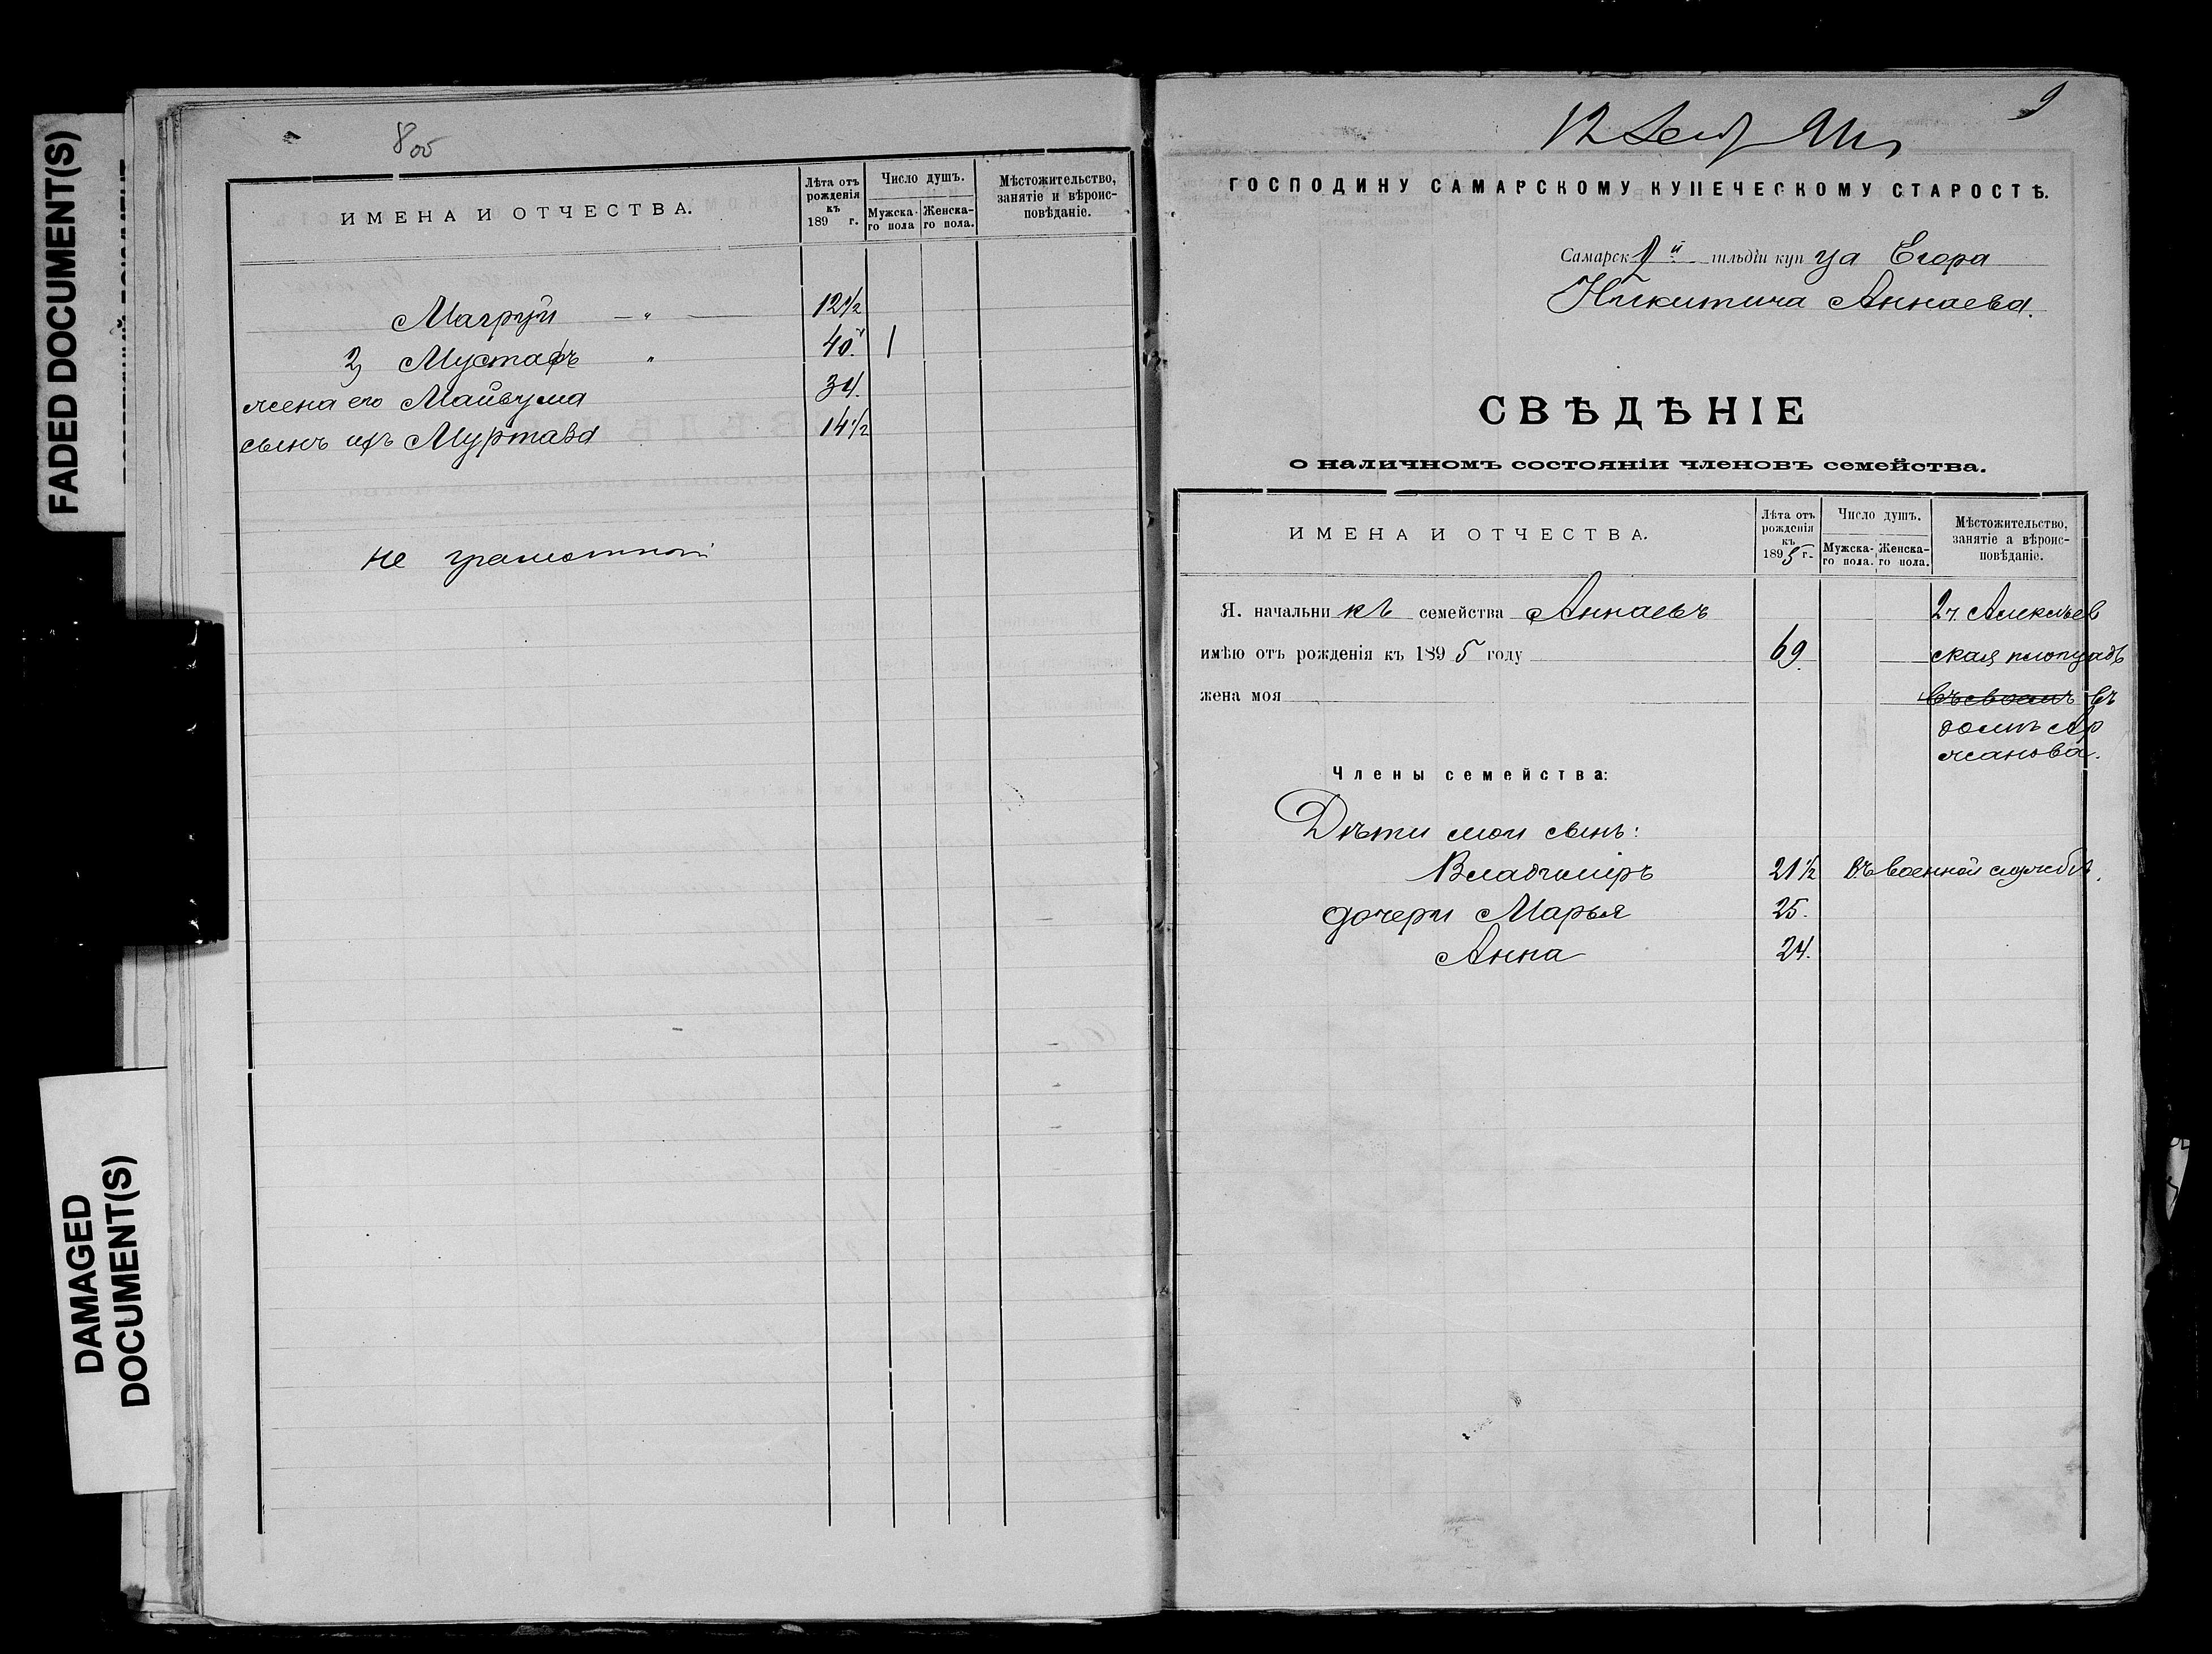 FADED DOCUMENT(S)
DAMAGED
DOCUMENT(S)
8об
ИМЕНА И ОТЧЕСТВА.
Лѣта отъ рожденія къ 189 г.
Число душъ.
Мужска-го пола
Женска-го пола.
Мѣстожительство, занятіе и вѣроис-повѣданіе.
Магруй — „ — 12 1/2
2, Мустафъ „ 40. 1
жена его 34.
сынъ ихъ Муртаза 14 1/2
не грамотной
9
12
ГОСПОДИНУ САМАРСКОМУ КУПЕЧЕСКОМУ СТАРОСТѢ.
Самарск гильдіи куп ца Егора
Никитича Аннаева.
СВѢДѢНІЕ
о наличномъ состояніи членовъ семейства.
ИМЕНА И ОТЧЕСТВА.
Лѣта отъ рожденія къ 1895 г.
Число душъ.
Мужска-го пола.
Женска-го пола.
Мѣстожительство, занятіе а вѣроис-повѣданіе.
Я. начальни къ семейства Аннаевъ 2 ч. Алексѣев
имѣю отъ рожденія къ 1895 году 69. ская площадь
жена моя въ своемъ въ
домѣ Ар
жанова.
Члены семейства:
Дѣти мои сынъ:
Владиміръ 21 1/2 Въ военной службѣ.
дочери Марья 25.
Анна 24.